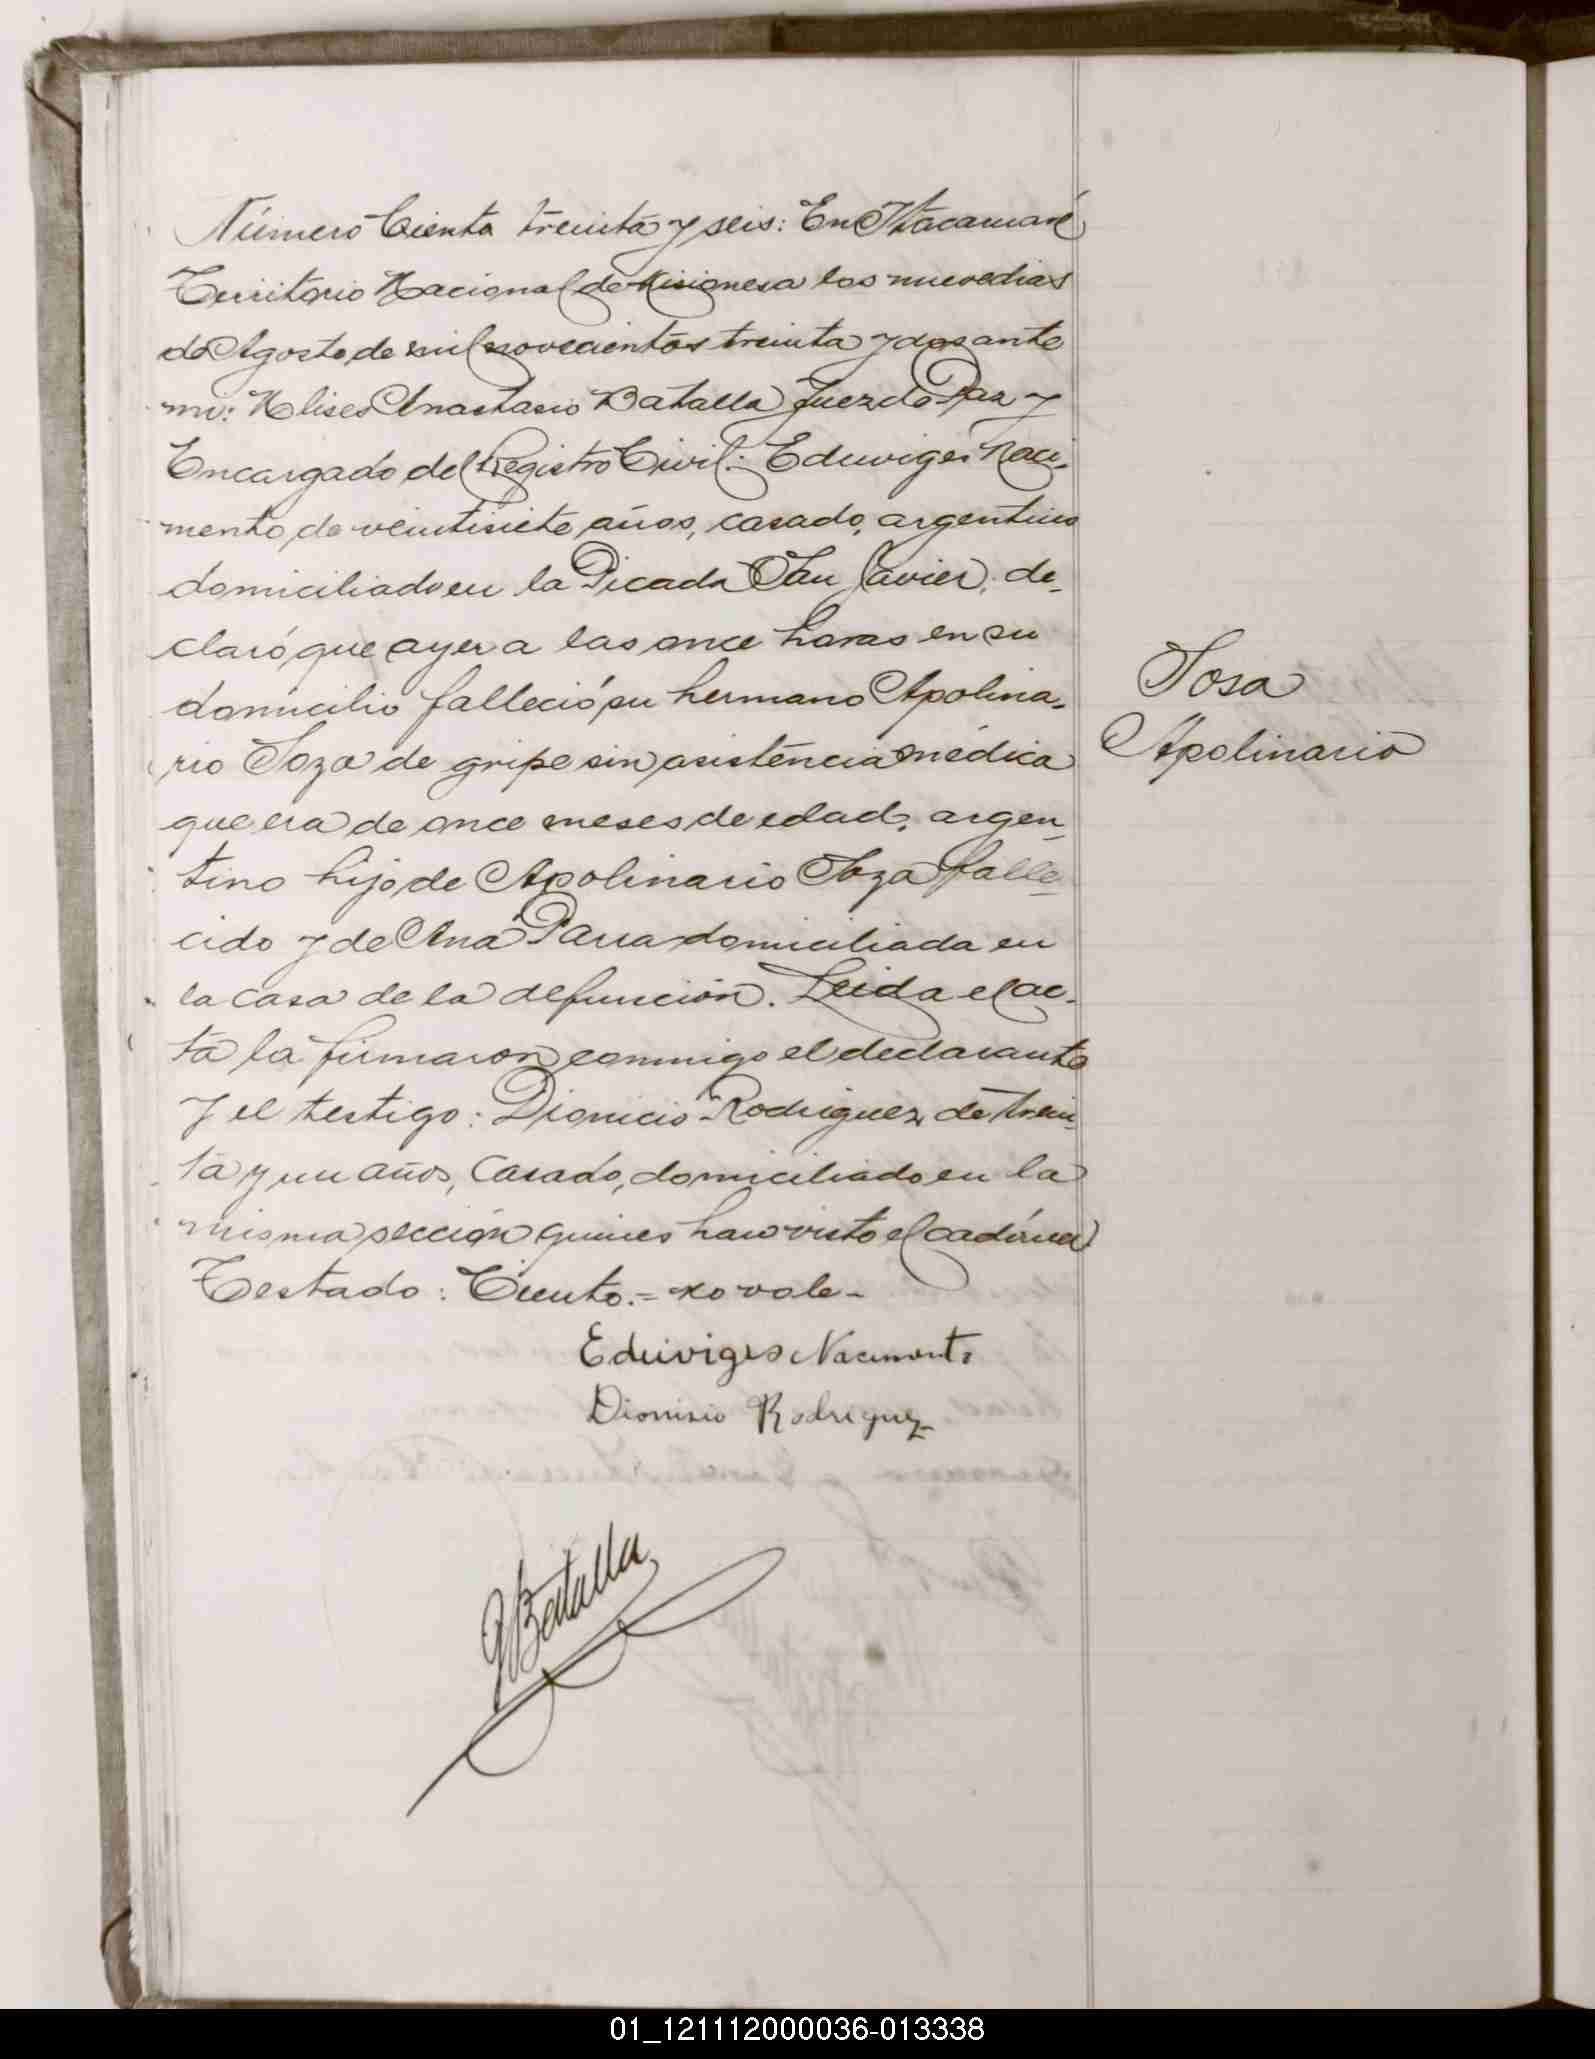 Número Ciento treinta y seis: En Itacaruaré
Territorio Nacional de Misiones a los nueve dias
de Agosto de mil novecientos treinta y dos ante
mi: Ulises Anastasio Batalla Juez de Paz y
Encargado del Registro Civil: Eduviges Naci-
mento, de veintisiete años, casado, argentino
domiciliado en la Picada San Javier, de-
claró que ayer a las once horas en su
domicilio falleció su hermano Apolina-
rio Soza de gripe sin asistencia médica
que era de once meses de edad, argen-
tino hijo de Apolinario Soza falle-
cido y de Ana Parra domiciliada en
la casa de la defunción. Leida el ac-
ta la firmaron conmigo el declarante
y el testigo: Dionicio Rodriguez de trein-
ta y un años, Casado, domiciliado en la
misma sección quienes han visto el cadáver
Testado: Ciento.= no vale-
Sosa
Apolinario
Eduviges Nacimento
Dionisio Rodriguez
Batalla
01_121112000036-013338